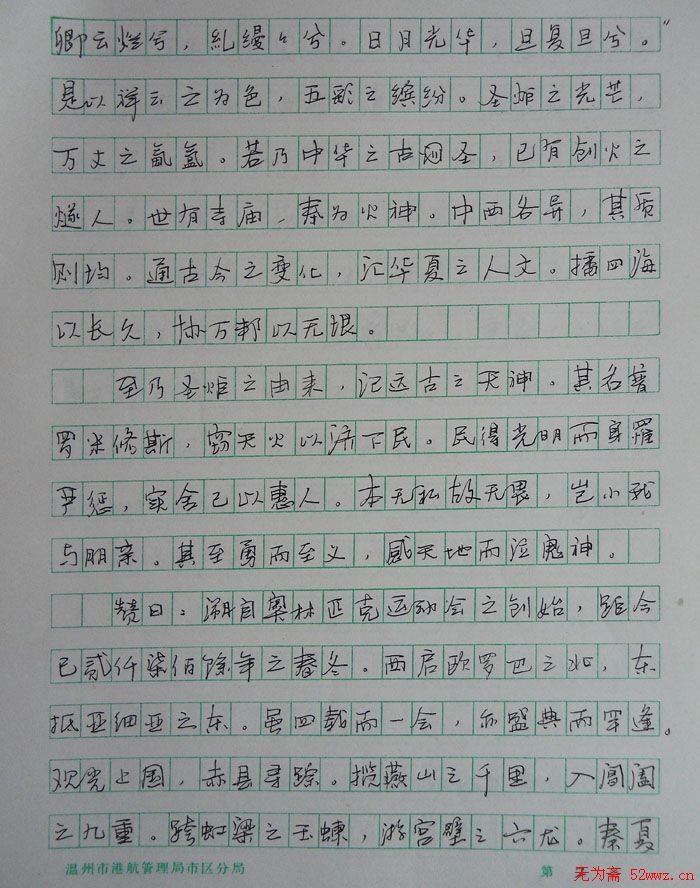 卿云烂兮，糺缦々兮。日月光华，旦复旦兮。”
是以祥云之为色，五彩之缤纷。圣炬之光芒，
万丈之氤氲。若乃中华之古圣，已有创火之
燧人。世有寺庙，奉为火神。中西各异，其质
则均。通古今之变化，汇华夏之人文。播四海
以长久，协万邦以无垠。
至乃圣炬之由来，记远古之天神。其名普
罗米修斯，窃天火以济下民。民得光明而身罹
严惩，实舍己以惠人。本无私故无畏，岂小我
与朋亲。其至勇而至义，感天地而泣鬼神。
赞曰：溯自奥林匹克运动会之创始，距今
已贰仟柒佰馀年之春冬。西启欧罗巴之北，东
抵亚细亚之东。虽四载而一会，亦盛典而罕逢。
观光上国，赤县寻踪。揽燕山之千里，入阊阖
之九重。跨虹梁之玉蝀，游宫壁之六龙。秦夏
温州市港航管理局市区分局
第
无为斋 52wwz.cn